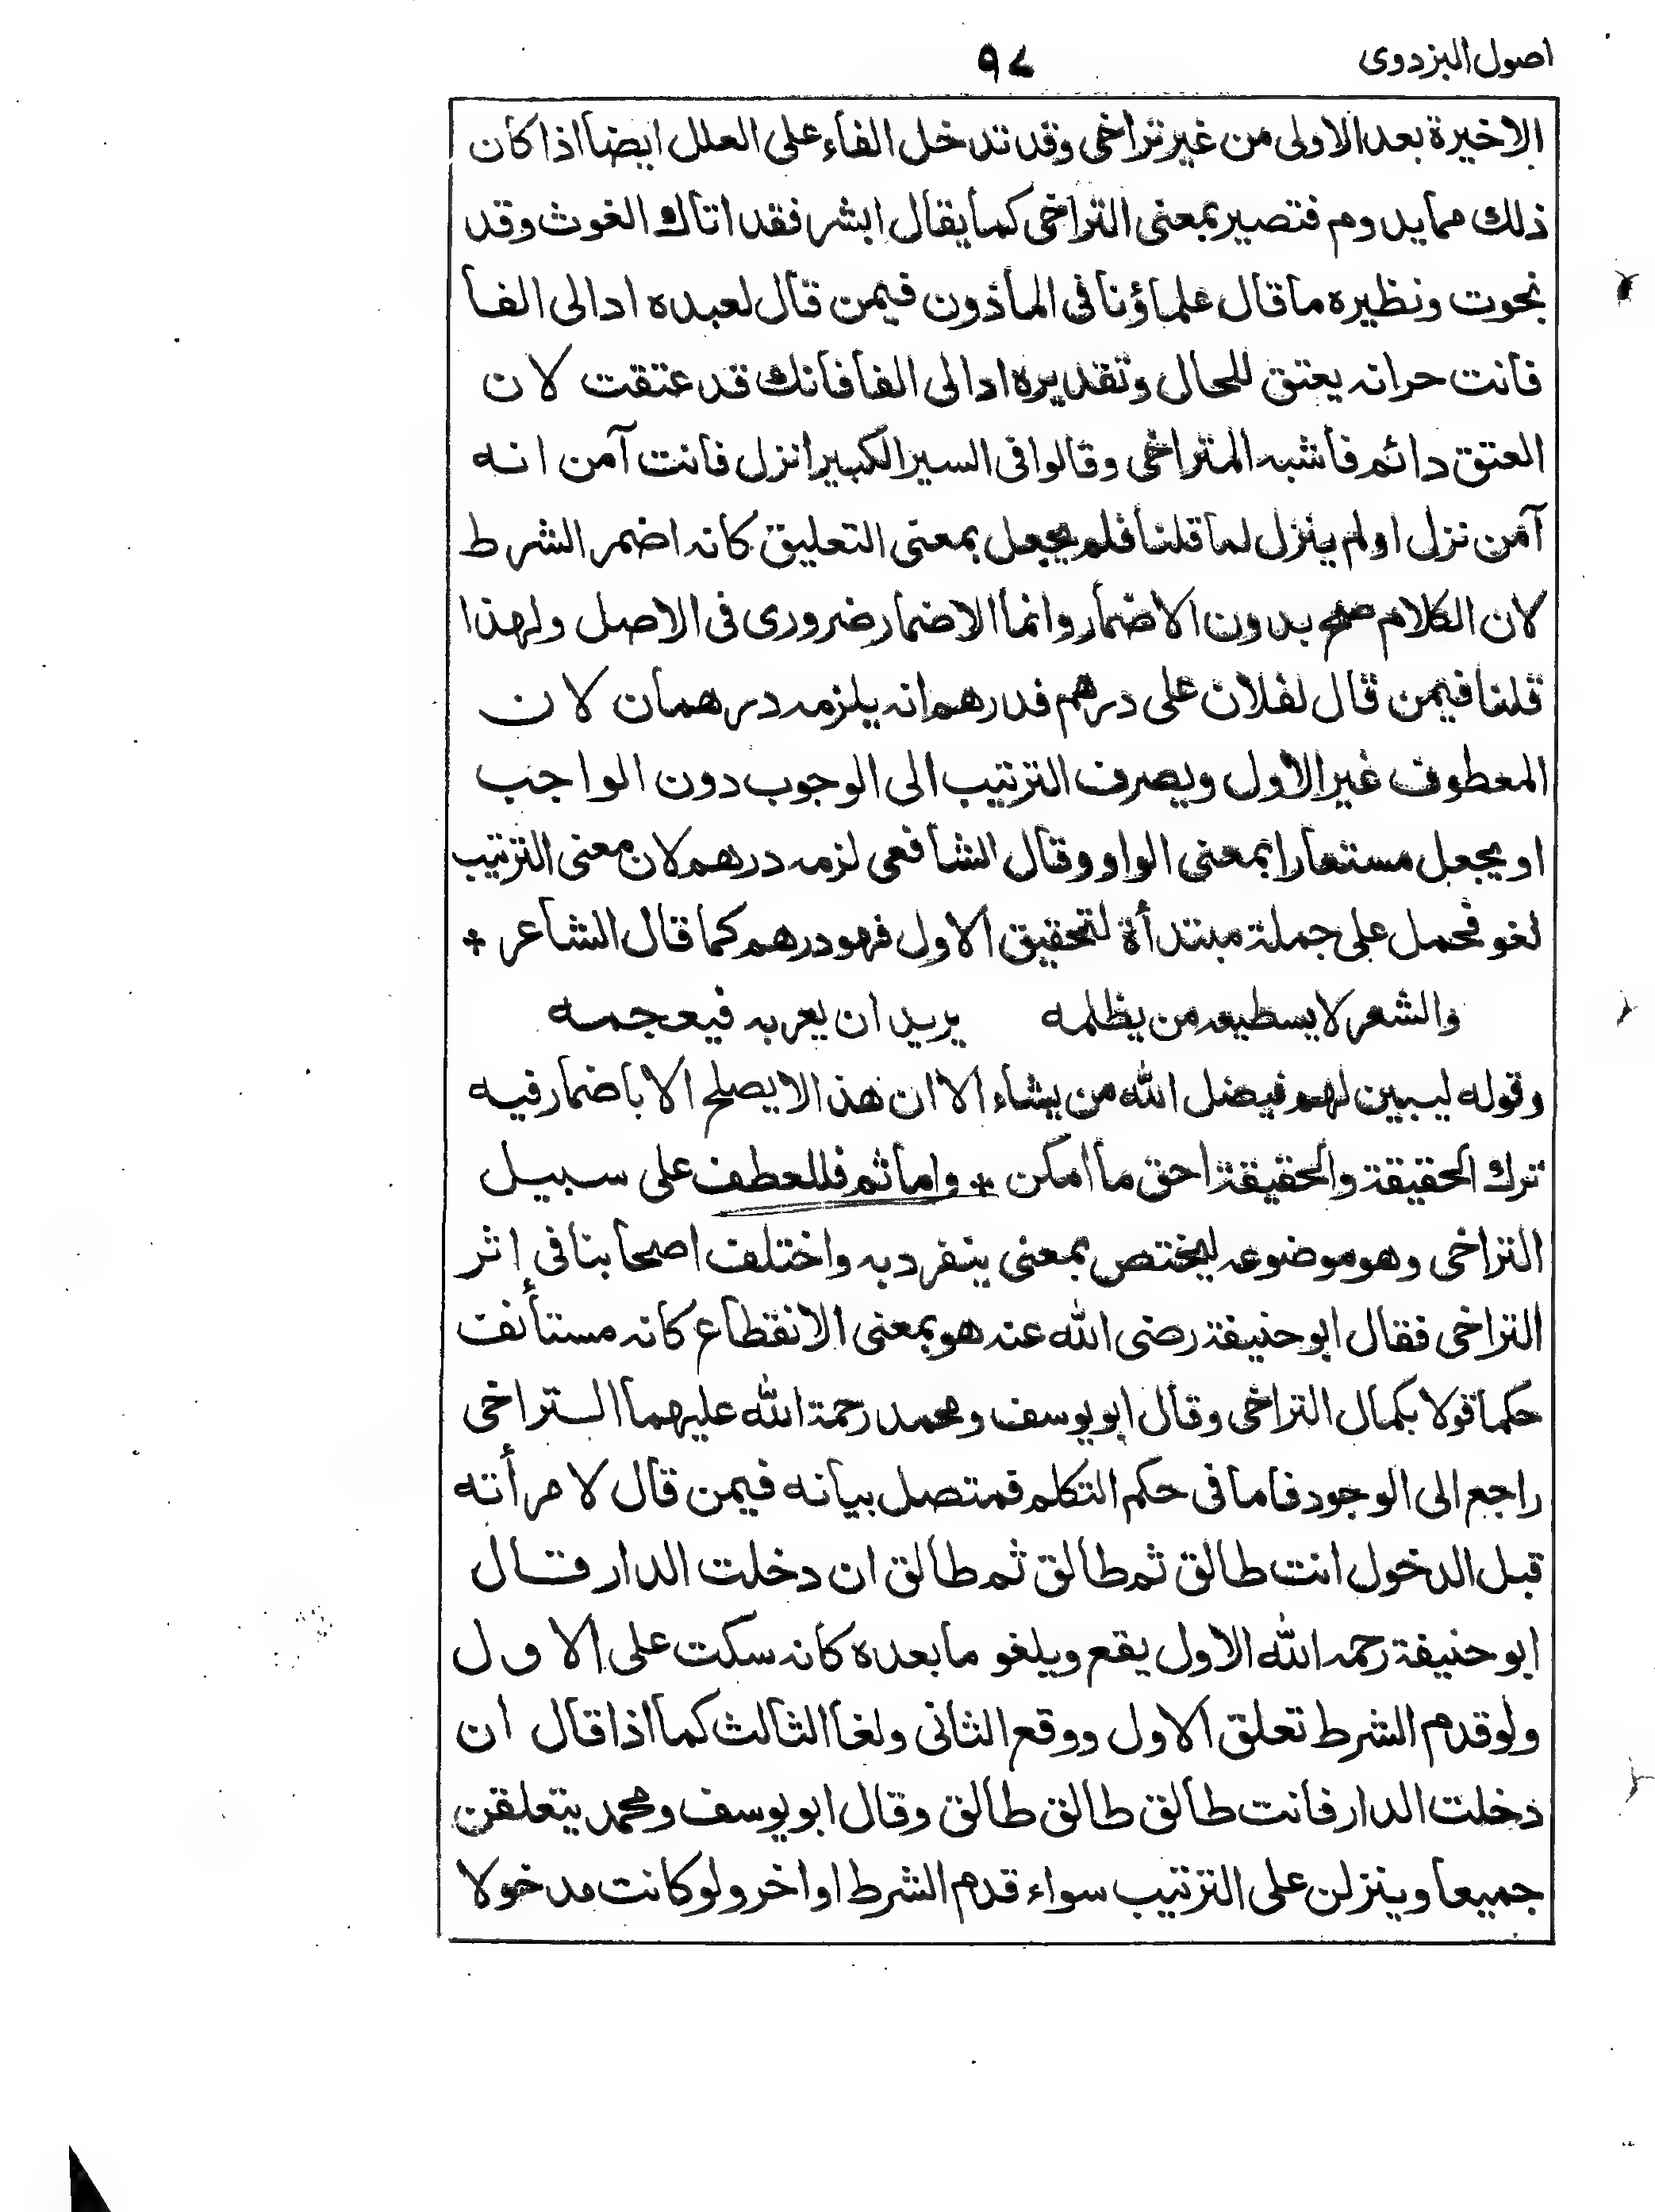 اصول البزدوى
٩٧
الاخيرة بعد الاولى من غير تراخى وقد تدخل الفاء على العلل ايضا اذا كان
ذلك مما يدوم فتصير بمعنى التراخى كما يقال ابشر فقد اتاك الغوث وقد
نجوت ونظيره ما قال علماؤنا فى المأذون فيمن قال لعبده اد الى الفا
فانت حر انه يعتق للحال وتقديره اد الى الفا فانك قد عتقت لان
العتق دائم فاشبه المتراخى وقالوا فى السير الكبير انزل فانت آمن انه
آمن نزل او لم ينزل لما قلنا فلم يجعل بمعنى التعليق كانه اضمر الشرط
لان الكلام صح بدون الاضمار وانما الاضمار ضرورى فى الاصل ولهذا
قلنا فيمن قال لفلان على درهم فدرهم انه يلزمه درهمان لان
المعطوف غير الاول ويصرف الترتيب الى الوجوب دون الواجب
او يجعل مستعارا بمعنى الواو وقال الشافعى لزمه درهم لان معنى الترتيب
لغو فحمل على جملة مبتدأة لتحقيق الاول فهو درهم كما قال الشاعر *
والشعر لا يسطيعه من يظلمه يريد ان يعربه فيعجمه
وقوله ليبين لهم فيضل الله من يشاء الا ان هذا لا يصلح الا باضمار فيه
ترك الحقيقة والحقيقة احق ما امكن * واما ثم فللعطف على سبيل
التراخى وهو موضوعه ليختص بمعنى ينفرد به واختلف اصحابنا فى إثر
التراخى فقال ابو حنيفة رضى الله عنه هو بمعنى الانقطاع كانه مستأنف
حكما قولا بكمال التراخى وقال ابو يوسف ومحمد رحمة الله عليهما التراخى
راجع الى الوجود فاما فى حكم التكلم فمتصل بيانه فيمن قال لامرأته
قبل الدخول انت طالق ثم طالق ثم طالق ان دخلت الدار قال
ابو حنيفة رحمه الله الاول يقع ويلغو ما بعده كانه سكت على الاول
ولو قدم الشرط تعلق الاول ووقع الثانى ولغا الثالث كما اذا قال ان
دخلت الدار فانت طالق طالق طالق وقال ابو يوسف ومحمد يتعلقن
جميعا وينزلن على الترتيب سواء قدم الشرط او اخر ولو كانت مدخولا